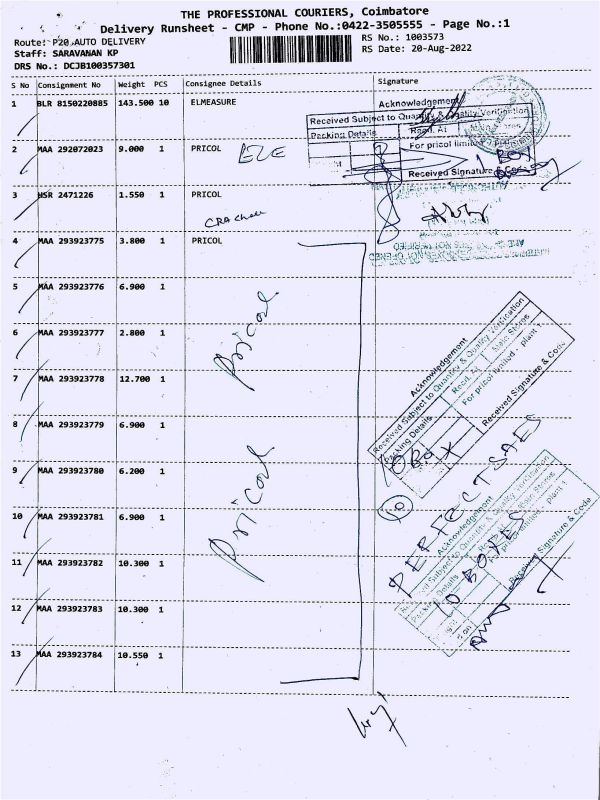 THE PROFESSIONAL COURIERS, Coimbatore
Delivery Runsheet - CMP - Phone No.:0422-3505555 - Page No.:1
Route: P20 AUTO DELIVERY
RS No.: 1003573
Staff: SARAVANAN KP
RS Date: 20-Aug-2022
DRS No.: DCJB100357301
S No Consignment No Weight PCS Consignee Details Signature
1 BLR 8150220885 143.500 10 ELMEASURE
Acknowledgement
Received Subject to Quantity & Quality Verification
Packing Details Recd. At
For pricol limited
Received Signature
2 MAA 292072023 9.000 1 PRICOL
1 BOX
3 HSR 2471226 1.550 1 PRICOL
4 MAA 293923775 3.800 1 PRICOL
5 MAA 293923776 6.900 1
6 MAA 293923777 2.800 1
Pricol
7 MAA 293923778 12.700 1
8 MAA 293923779 6.900 1
9 MAA 293923780 6.200 1
Pricol
10 MAA 293923781 6.900 1
11 MAA 293923782 10.300 1
12 MAA 293923783 10.300 1
13 MAA 293923784 10.550 1
Acknowledgement
Received Subject to Quantity & Quality Verification
Packing Details Recd. At Main Stores
For pricol limited - plant 1
Received Signature & Code
10 BOX
10
PERFECT SAES
10 BOXES
Acknowledgement
Received Subject to Quantity & Quality Verification
Packing Details Main Stores
For pricol limited - plant 1
Received Signature & Code